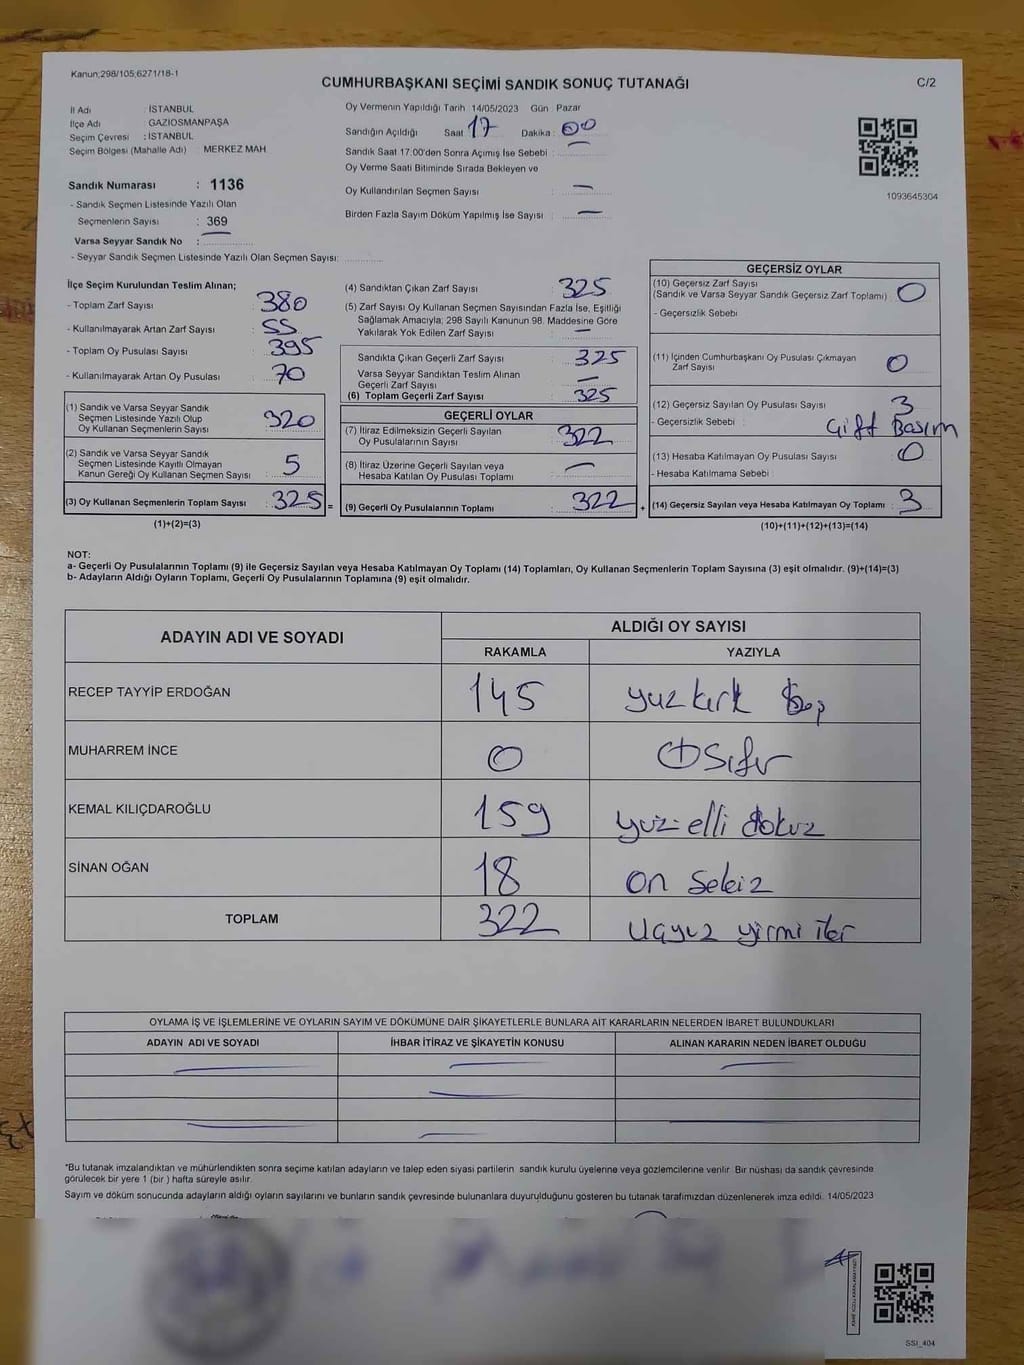 Kanun;298/105;6271/18-1
CUMHURBAŞKANI SEÇİMİ SANDIK SONUÇ TUTANAĞI
C/2
İl Adı : İSTANBUL
İlçe Adı : GAZİOSMANPAŞA
Seçim Çevresi : İSTANBUL
Seçim Bölgesi (Mahalle Adı) : MERKEZ MAH
Sandık Numarası : 1136
- Sandık Seçmen Listesinde Yazılı Olan
Seçmenlerin Sayısı : 369
Varsa Seyyar Sandık No :
- Seyyar Sandık Seçmen Listesinde Yazılı Olan Seçmen Sayısı:
Oy Vermenin Yapıldığı Tarih 14/05/2023 Gün Pazar
Sandığın Açıldığı Saat 17 Dakika : 00
Sandık Saat 17.00'den Sonra Açımış İse Sebebi :
Oy Verme Saati Bitiminde Sırada Bekleyen ve
Oy Kullandırılan Seçmen Sayısı : —
Birden Fazla Sayım Döküm Yapılmış İse Sayısı : —
1093645304
İlçe Seçim Kurulundan Teslim Alınan;
- Toplam Zarf Sayısı : 380
- Kullanılmayarak Artan Zarf Sayısı : 55
- Toplam Oy Pusulası Sayısı : 395
- Kullanılmayarak Artan Oy Pusulası : 70
(1) Sandık ve Varsa Seyyar Sandık
Seçmen Listesinde Yazılı Olup
Oy Kullanan Seçmenlerin Sayısı : 320
(2) Sandık ve Varsa Seyyar Sandık
Seçmen Listesinde Kayıtlı Olmayan
Kanun Gereği Oy Kullanan Seçmen Sayısı : 5
(3) Oy Kullanan Seçmenlerin Toplam Sayısı : 325 =
(1)+(2)=(3)
(4) Sandıktan Çıkan Zarf Sayısı : 325
(5) Zarf Sayısı Oy Kullanan Seçmen Sayısından Fazla İse, Eşitliği
Sağlamak Amacıyla; 298 Sayılı Kanunun 98. Maddesine Göre
Yakılarak Yok Edilen Zarf Sayısı : —
Sandıkta Çıkan Geçerli Zarf Sayısı : 325
Varsa Seyyar Sandıktan Teslim Alınan
Geçerli Zarf Sayısı : —
(6) Toplam Geçerli Zarf Sayısı : 325
GEÇERLİ OYLAR
(7) İtiraz Edilmeksizin Geçerli Sayılan
Oy Pusulalarının Sayısı : 322
(8) İtiraz Üzerine Geçerli Sayılan veya
Hesaba Katılan Oy Pusulası Toplamı : —
(9) Geçerli Oy Pusulalarının Toplamı : 322 +
GEÇERSİZ OYLAR
(10) Geçersiz Zarf Sayısı
(Sandık ve Varsa Seyyar Sandık Geçersiz Zarf Toplamı) : 0
- Geçersizlik Sebebi
(11) İçinden Cumhurbaşkanı Oy Pusulası Çıkmayan
Zarf Sayısı : 0
(12) Geçersiz Sayılan Oy Pusulası Sayısı : 3
- Geçersizlik Sebebi : Çift Basım
(13) Hesaba Katılmayan Oy Pusulası Sayısı : 0
- Hesaba Katılmama Sebebi :
(14) Geçersiz Sayılan veya Hesaba Katılmayan Oy Toplamı : 3
(10)+(11)+(12)+(13)=(14)
NOT:
a- Geçerli Oy Pusulalarının Toplamı (9) ile Geçersiz Sayılan veya Hesaba Katılmayan Oy Toplamı (14) Toplamları, Oy Kullanan Seçmenlerin Toplam Sayısına (3) eşit olmalıdır. (9)+(14)=(3)
b- Adayların Aldığı Oyların Toplamı, Geçerli Oy Pusulalarının Toplamına (9) eşit olmalıdır.
ADAYIN ADI VE SOYADI
ALDIĞI OY SAYISI
RAKAMLA YAZIYLA
RECEP TAYYİP ERDOĞAN 145 yüz kırk beş
MUHARREM İNCE 0 Sıfır
KEMAL KILIÇDAROĞLU 159 yüz elli dokuz
SİNAN OĞAN 18 on sekiz
TOPLAM 322 üçyüz yirmi iki
OYLAMA İŞ VE İŞLEMLERİNE VE OYLARIN SAYIM VE DÖKÜMÜNE DAİR ŞİKAYETLERLE BUNLARA AİT KARARLARIN NELERDEN İBARET BULUNDUKLARI
ADAYIN ADI VE SOYADI İHBAR İTİRAZ VE ŞİKAYETİN KONUSU ALINAN KARARIN NEDEN İBARET OLDUĞU
*Bu tutanak imzalandıktan ve mühürlendikten sonra seçime katılan adayların ve talep eden siyasi partilerin sandık kurulu üyelerine veya gözlemcilerine verilir. Bir nüshası da sandık çevresinde
görülecek bir yere 1 (bir) hafta süreyle asılır.
Sayım ve döküm sonucunda adayların aldığı oyların sayılarını ve bunların sandık çevresinde bulunanlara duyurulduğunu gösteren bu tutanak tarafımızdan düzenlenerek imza edildi. 14/05/2023
SSI_404